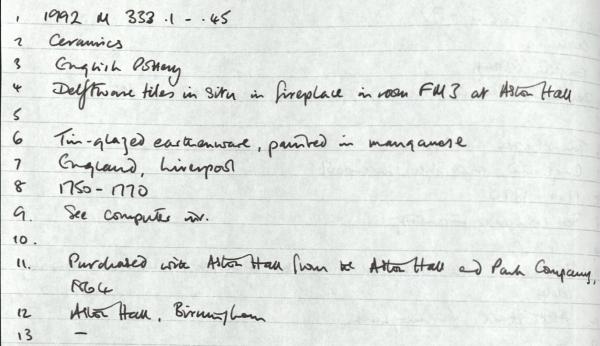 1 1992 M 333 .1 - .45
2 Ceramics
3 English Pottery
4 Delftware tiles in situ in fireplace in room FM3 at Aston Hall
5
6 Tin-glazed earthenware, painted in manganese
7 England, Liverpool
8 1750-1770
9. See computer
10.
11. Purchased with Aston Hall from the Aston Hall and Park Company,
1864
12 Aston Hall, Birmingham
13 -